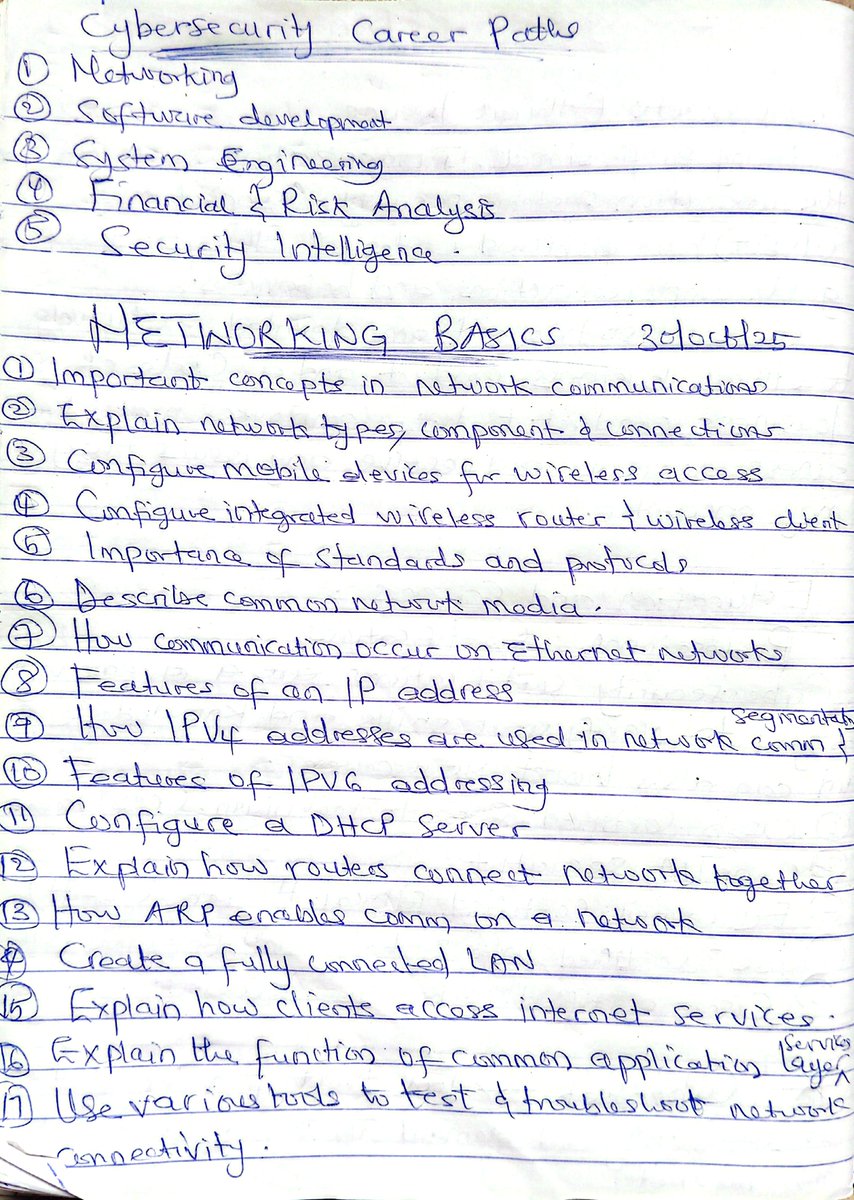 Cybersecurity Career Paths
① Networking
② Software development
③ System Engineering
④ Financial & Risk Analysis
⑤ Security Intelligence.
NETWORKING BASICS 30/Oct/25
① Important concepts in network communications
② Explain network types, component & connections
③ Configure mobile devices for wireless access
④ Configure integrated wireless router & wireless client
⑤ Importance of standards and protocols
⑥ Describe common network media.
⑦ How communication occur on Ethernet networks
⑧ Features of an IP address
⑨ How IPV4 addresses are used in network comm & segmentatn
⑩ Features of IPV6 addressing
⑪ Configure a DHCP Server
⑫ Explain how routers connect network together
⑬ How ARP enables comm on a network
⑭ Create a fully connected LAN
⑮ Explain how clients access internet services.
⑯ Explain the function of common application layer services
⑰ Use various tools to test & troubleshoot network
connectivity.